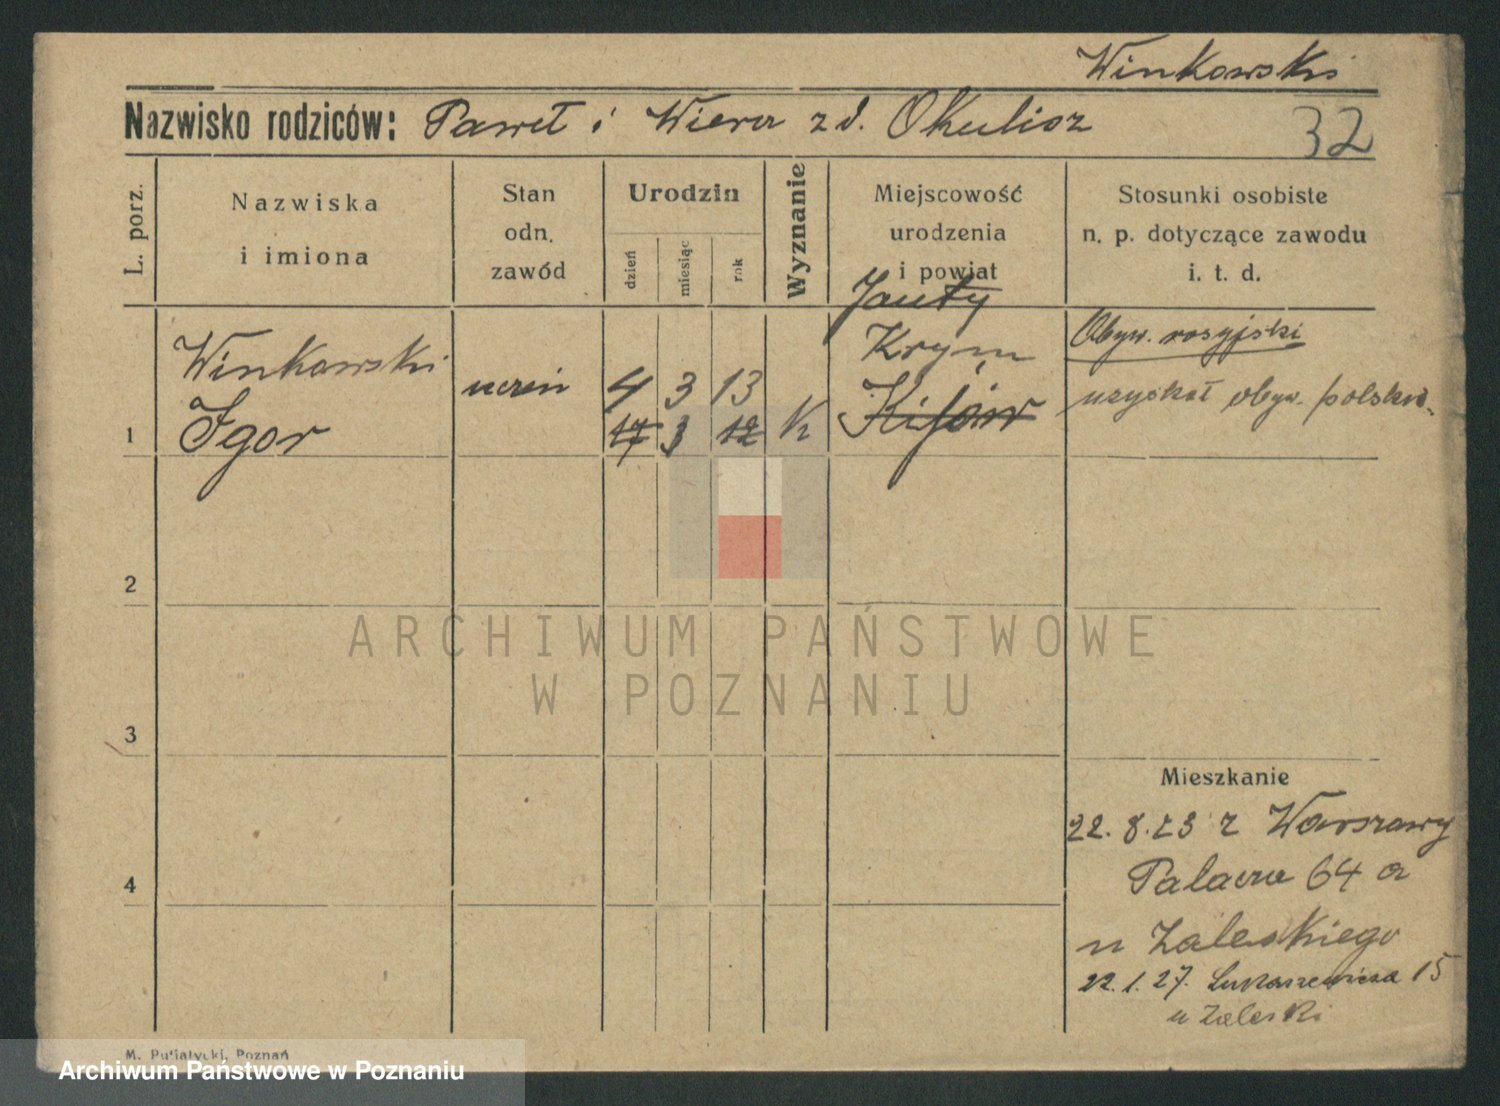 Winkowski
Nazwisko rodziców: Paweł i Wiera z d. Okulicz
32
L. porz.
Nazwiska
i imiona
Stan
odn.
zawód
Urodzin
dzień
miesiąc
rok
Wyznanie
Miejscowość
urodzenia
i powiat
Stosunki osobiste
n. p. dotyczące zawodu
i. t. d.
1
Winkowski
Igor
uczeń
4 3 13
17 3 12
k
Jauty
Krym
Kijów
Obyw. rosyjski
uzyskał obyw. polskie.
2
3
4
Mieszkanie
22. 8. 23 z Warszawy
Palacza 64 a
u Zaleskiego
22. 1. 27. Łukaszewicza 15
u Zaleski
M. Putiatycki, Poznań
ARCHIWUM PAŃSTWOWE
W POZNANIU
Archiwum Państwowe w Poznaniu